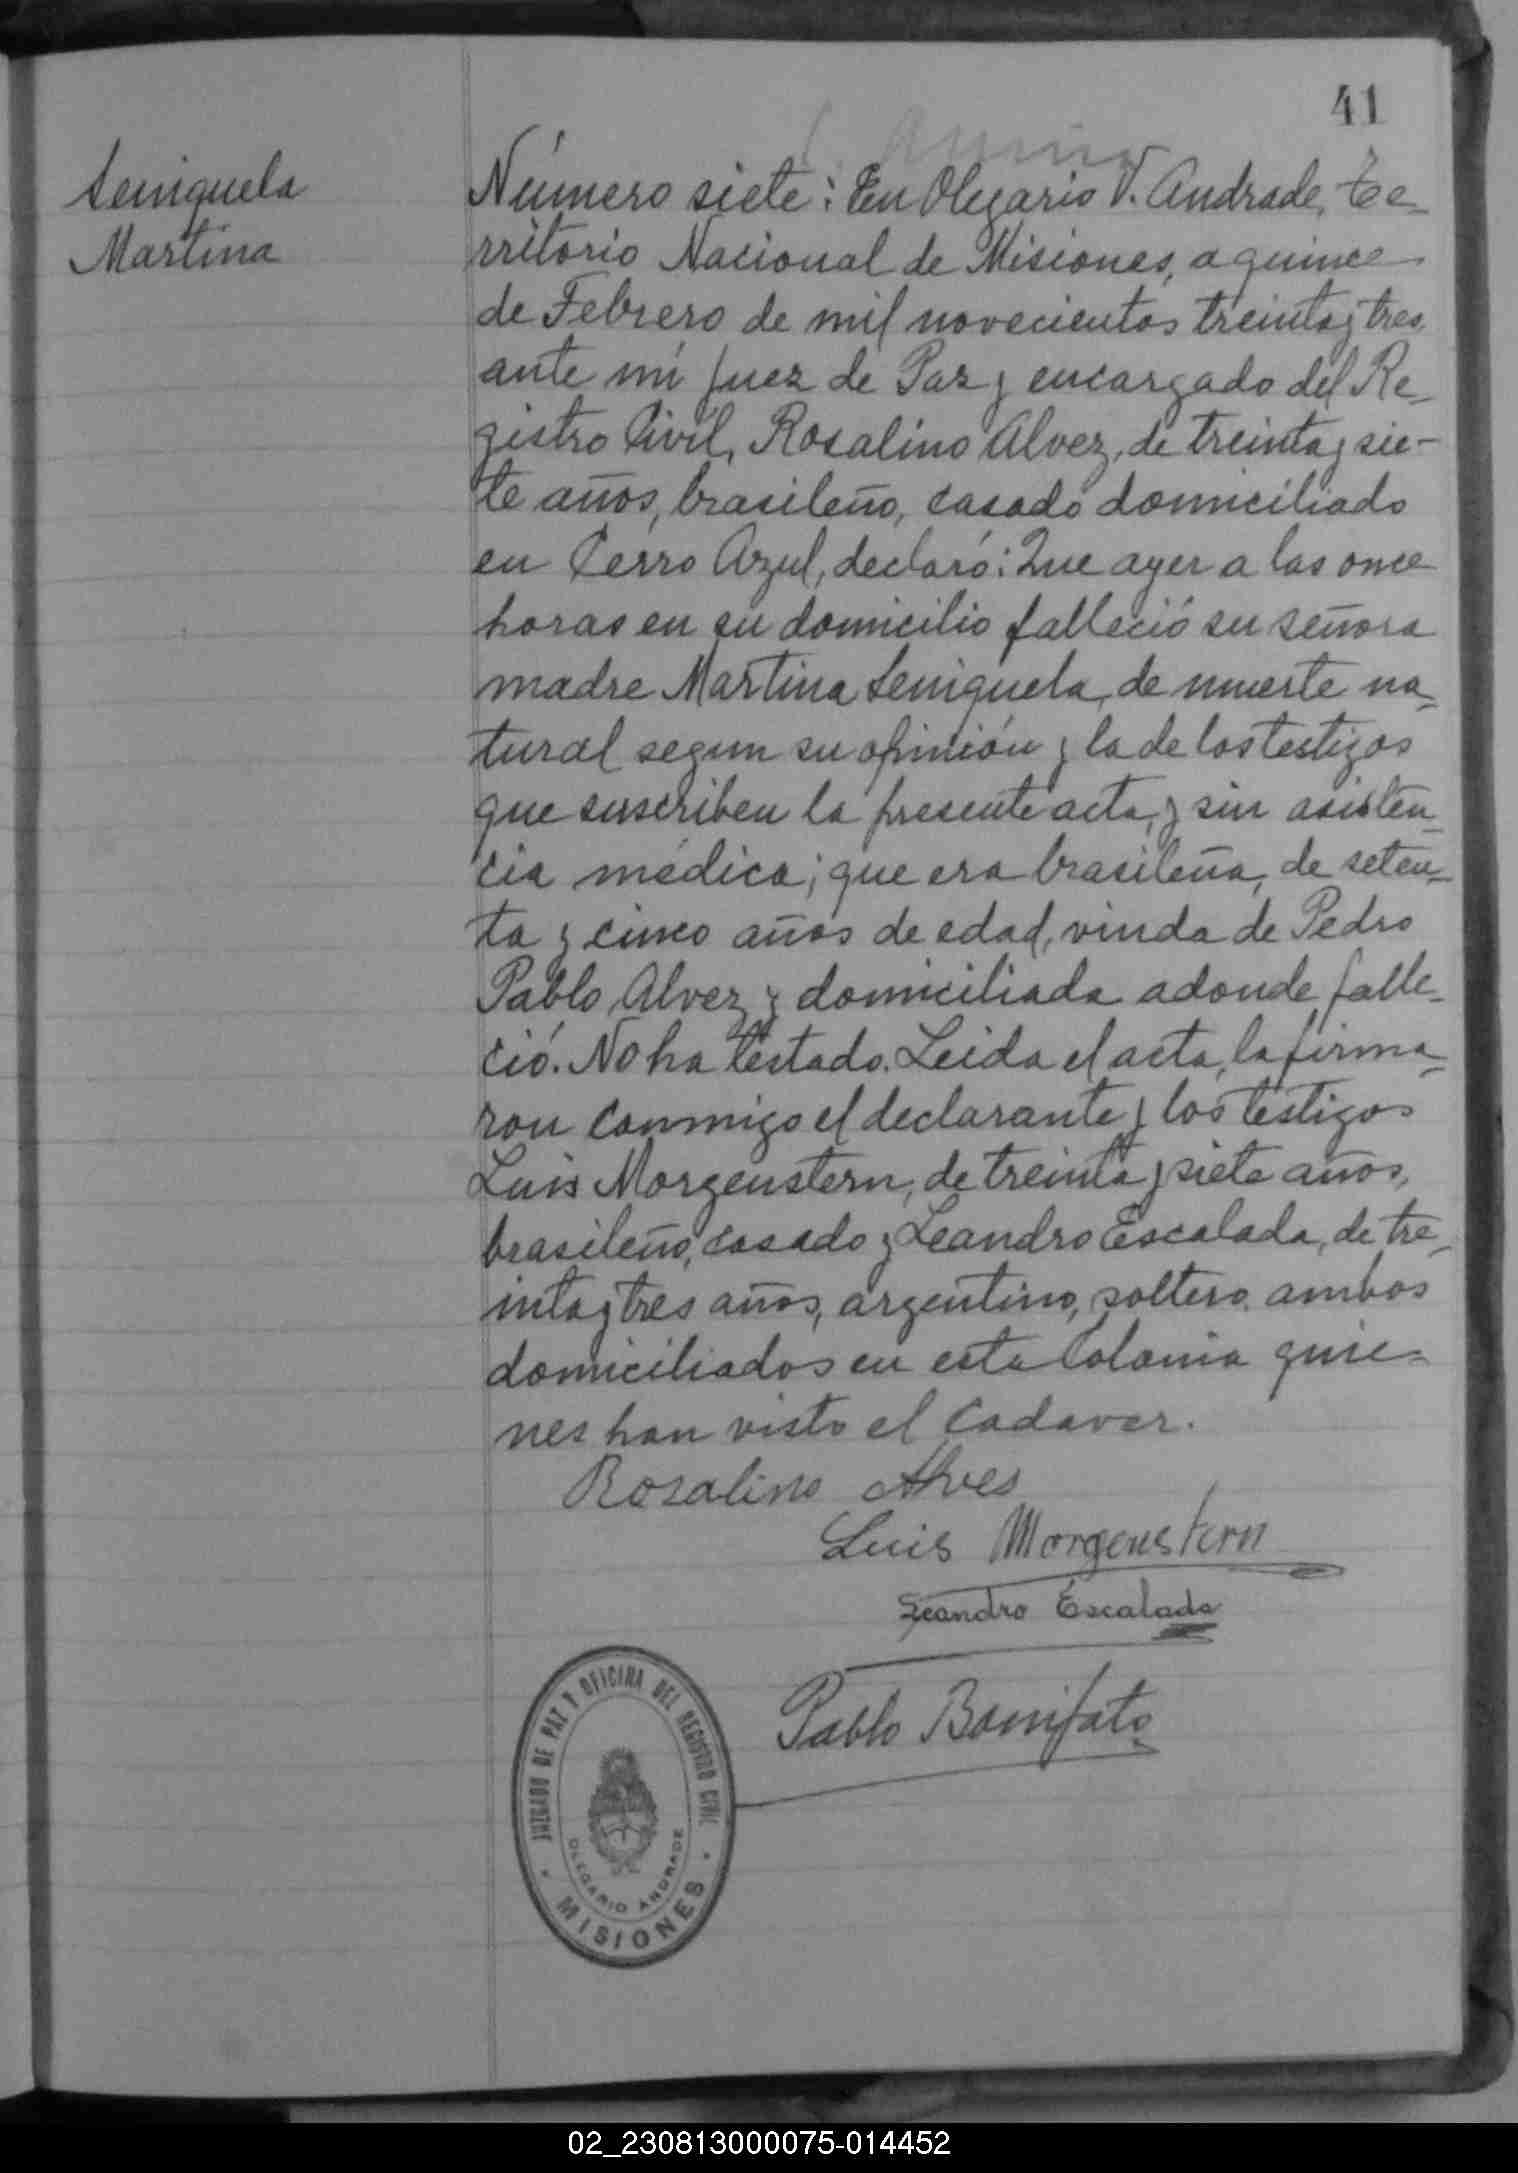 41
Seniquela
Martina
Número siete: En Olegario V. Andrade, Te-
rritorio Nacional de Misiones, a quince
de Febrero de mil novecientos treinta y tres,
ante mi Juez de Paz y encargado del Re-
gistro Civil, Rosalino Alvez, de treinta y sie-
te años, brasileño, casado domiciliado
en Cerro Azul, declaró: Que ayer a las once
horas en su domicilio falleció su señora
madre Martina Seniquela, de muerte na-
tural segun su opinión y la de los testigos
que suscriben la presente acta, y sin asisten-
cia médica; que era brasileña, de seten-
ta y cinco años de edad, viuda de Pedro
Pablo Alvez y domiciliada adonde falle-
ció. No ha testado. Leida el acta, la firma-
ron conmigo el declarante y los testigos
Luis Morgenstern, de treinta y siete años,
brasileño, casado y Leandro Escalada, de tre-
inta y tres años, argentino, soltero, ambos
domiciliados en esta Colonia quie-
nes han visto el cadaver.
Rosalino Alves
Luis Morgenstern
Leandro Escalada
Pablo Bonifato
JUZGADO DE PAZ Y OFICINA DEL REGISTRO CIVIL
OLEGARIO ANDRADE
MISIONES
02_230813000075-014452